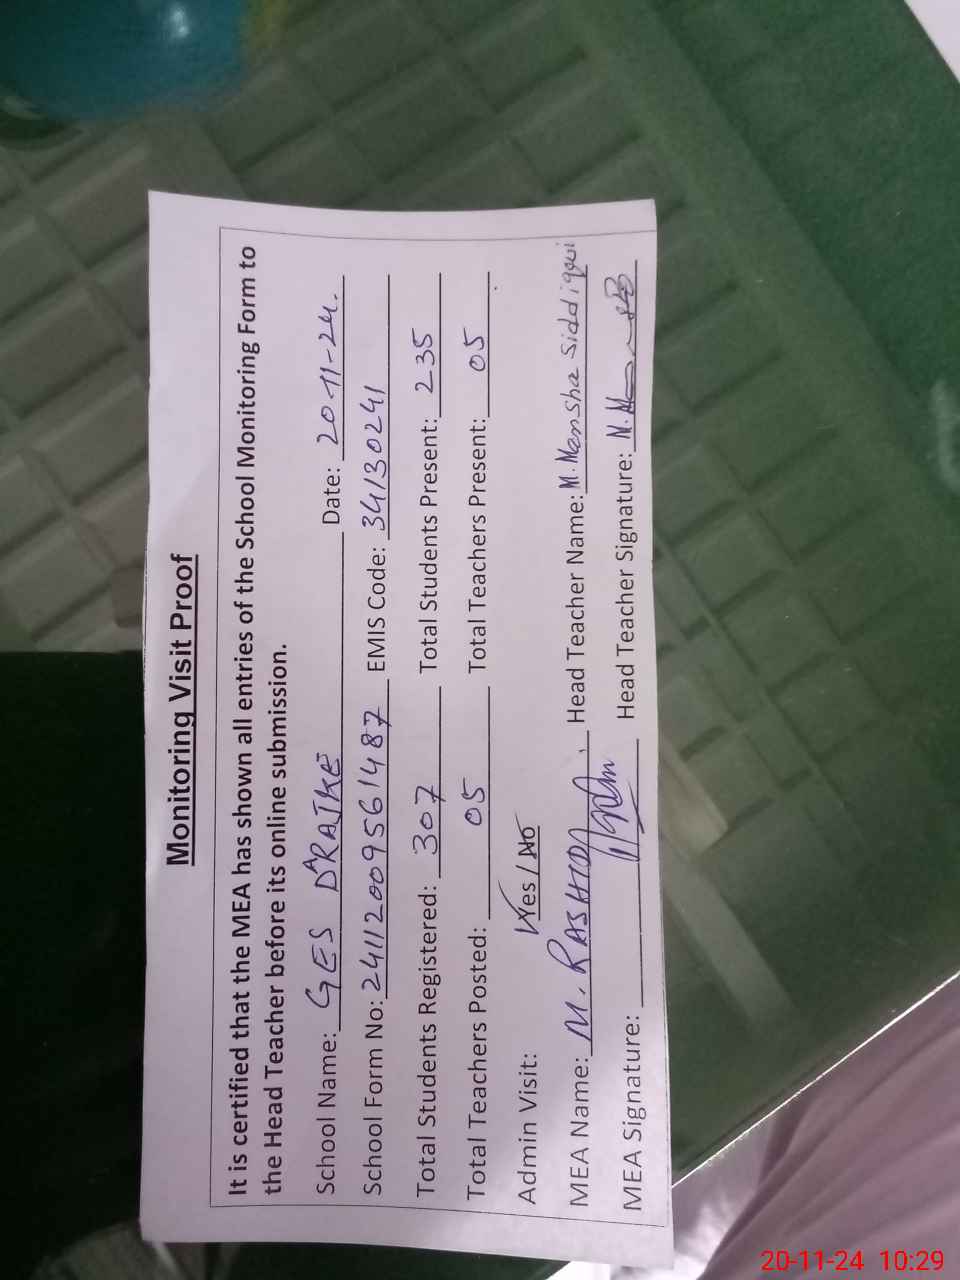 Monitoring Visit Proof
It is certified that the MEA has shown all entries of the School Monitoring Form to
the Head Teacher before its online submission.
School Name: GES DARAJKE Date: 20-11-24.
School Form No: 24112009561487 EMIS Code: 34130241
Total Students Registered: 307 Total Students Present: 235
Total Teachers Posted: 05 Total Teachers Present: 05
Admin Visit: Yes / No
MEA Name: M. RASHID. Head Teacher Name: M. Mansha Siddiqui
MEA Signature: Head Teacher Signature:
20-11-24 10:29